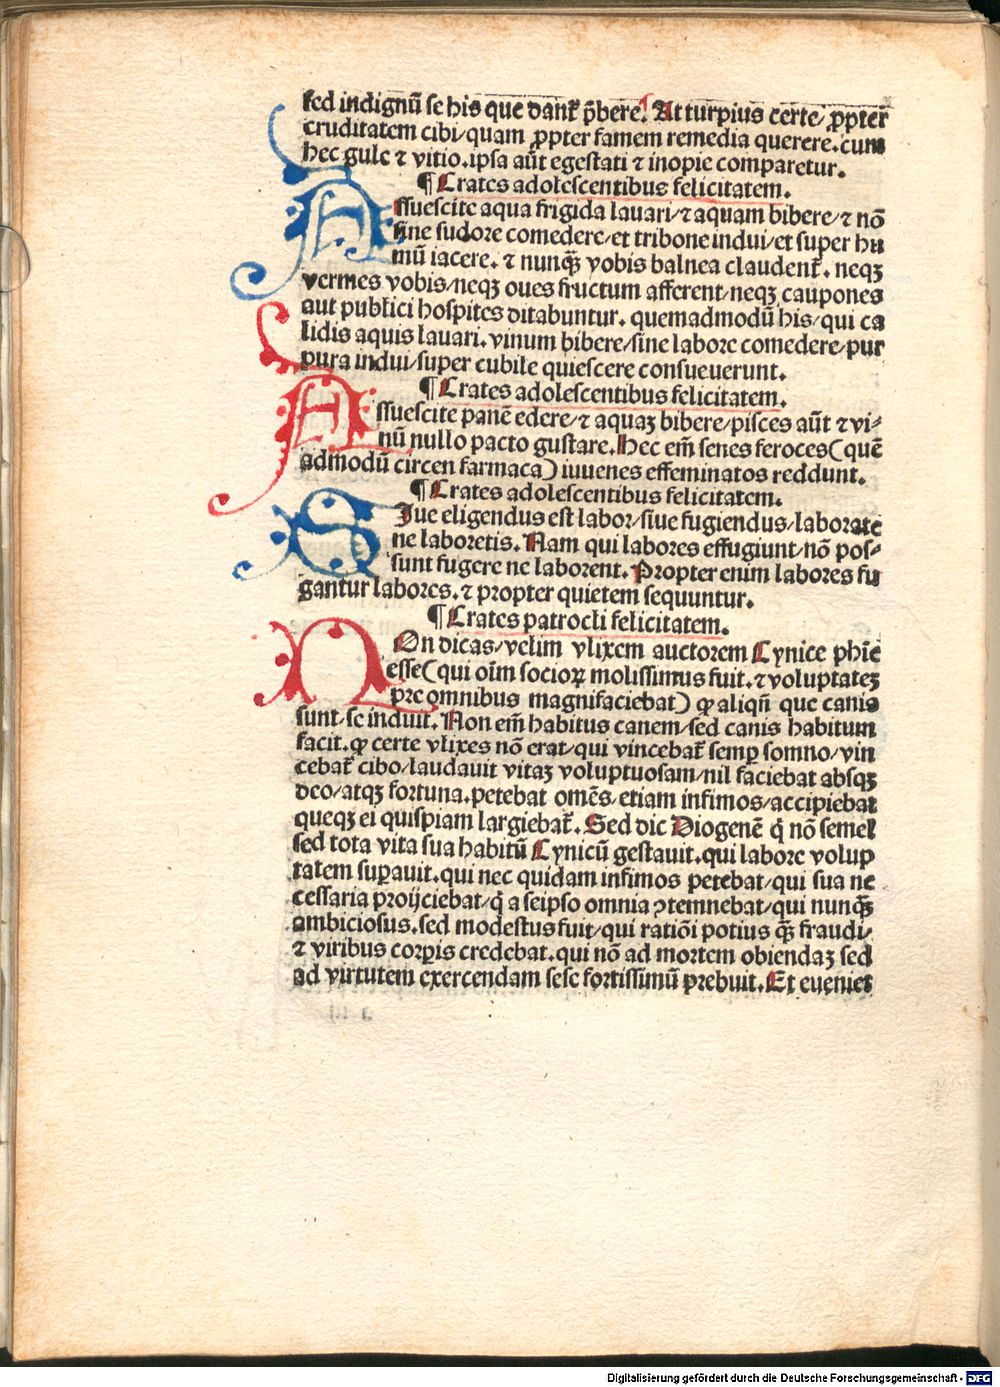 sed indignũ se his que danť p̃bere. At turpius certe/ ꝓpter
cruditatem cibi/ quam ꝓpter famem remedia querere. cum
hec gule ⁊ vitio. ipsa aũt egestati ⁊ inopie comparetur.
¶ Crates adolescentibus felicitatem.
Assuescite aqua frigida lauari/ ⁊ aquam bibere/ ⁊ nõ
sine sudore comedere/ et tribone indui/ et super hu
mũ iacere. ⁊ nunqͣꝫ vobis balnea claudenť. neqꝫ
vermes vobis/ neqꝫ oues fructum afferent/ neqꝫ caupones
aut publici hospites ditabuntur. quemadmodũ his/ qui ca
lidis aquis lauari. vinum bibere/ sine labore comedere/ pur
pura indui/ super cubile quiescere consueuerunt.
¶ Crates adolescentibus felicitatem.
Assuescite panẽ edere/ ⁊ aquaꝫ bibere/ pisces aũt ⁊ vi⸗
nũ nullo pacto gustare. Hec em̃ senes feroces (quẽ
admodũ circen farmaca) iuuenes effeminatos reddunt.
¶ Crates adolescentibus felicitatem.
SJue eligendus est labor/ siue fugiendus/ laborate
ne laboretis. Nam qui labores effugiunt/ nõ pos⸗
sunt fugere ne laborent. Propter enim labores fu
gantur labores. ⁊ propter quietem sequuntur.
¶ Crates patrocli felicitatem.
NOn dicas/ velim vlixem auctorem Cynice phĩe
esse (qui oĩm socioꝝ molissimus fuit. ⁊ voluptateꝫ
pre omnibus magnifaciebat) ꝙ aliqñ que canis
sunt/ se induit. Non em̃ habitus canem/ sed canis habitum
facit. ꝙ certe vlixes nõ erat/ qui vincebať semꝑ somno/ vin
cebať cibo/ laudauit vitaꝫ voluptuosam/ nil faciebat absqꝫ
deo/ atqꝫ fortuna. petebat omẽs/ etiam infimos/ accipiebat
queqꝫ ei quispiam largiebať. Sed dic Diogenẽ q̇ nõ semel
sed tota vita sua habitũ Cynicũ gestauit. qui labore volup
tatem suꝑauit. qui nec quidam infimos petebat/ qui sua ne
cessaria proijciebat/ q̇ a seipso omnia ꝯtemnebat/ qui nunqͣꝫ
ambiciosus. sed modestus fuit/ qui ratiõi potius qͣꝫ fraudi/
⁊ viribus corꝑis credebat. qui nõ ad mortem obiendaꝫ sed
ad virtutem exercendam sese fortissimũ prebuit. Et eueniet
Digitalisierung gefördert durch die Deutsche Forschungsgemeinschaft - DFG